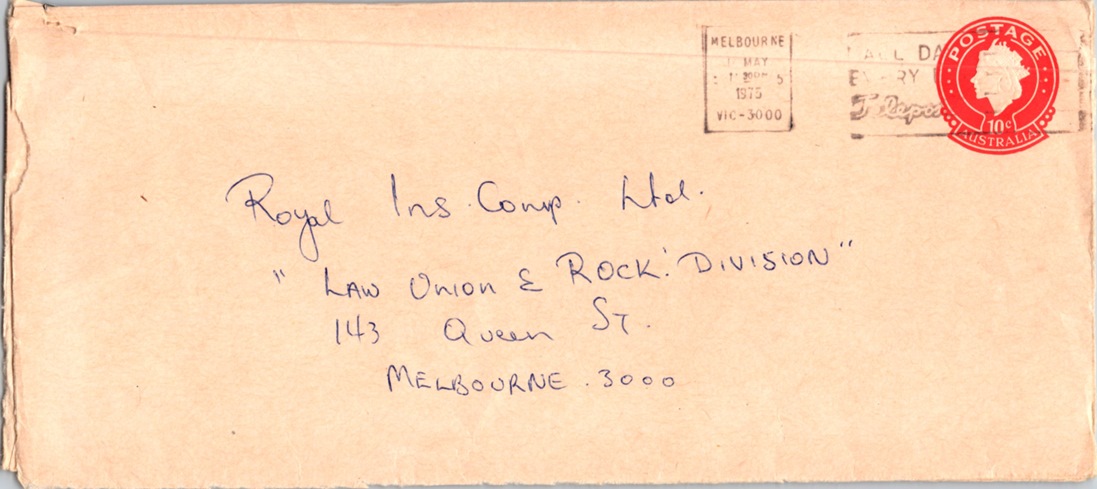 MELBOURNE
MAY
1975
VIC-3000
ALL DA
EVERY
Telepos
POSTAGE
10c
AUSTRALIA
Royal Ins. Comp. Ltd.
" LAW Union & ROCK. DIVISION "
143 Queen ST.
MELBOURNE . 3000